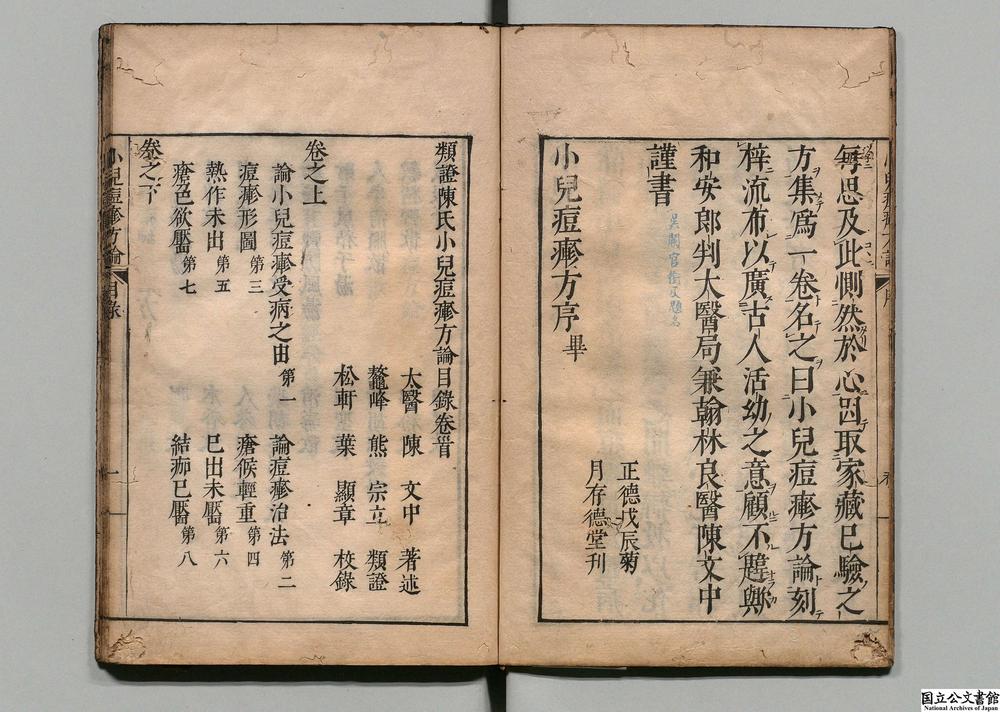 每思及此惻然於心因取家藏已驗之
方集爲一卷名之曰小兒痘疹方論刻
梓流布以廣古人活幼之意顧不韙歟
和安郎判太醫局兼翰林良醫陳文中
謹書
小兒痘疹方序畢
正德戊辰菊
月存德堂刊
類證陳氏小兒痘疹方論目錄卷首
太醫陳文中著述
鰲峰熊宗立類證
松軒葉顯章校錄
卷之上
論小兒痘疹受病之由第一
論痘疹治法第二
痘疹形圖第三
瘡候輕重第四
熱作未出第五
已出未靨第六
瘡色欲靨第七
結痂已靨第八
卷之下
小兒痘疹方論
目錄
一
国立公文書館
National Archives of Japan